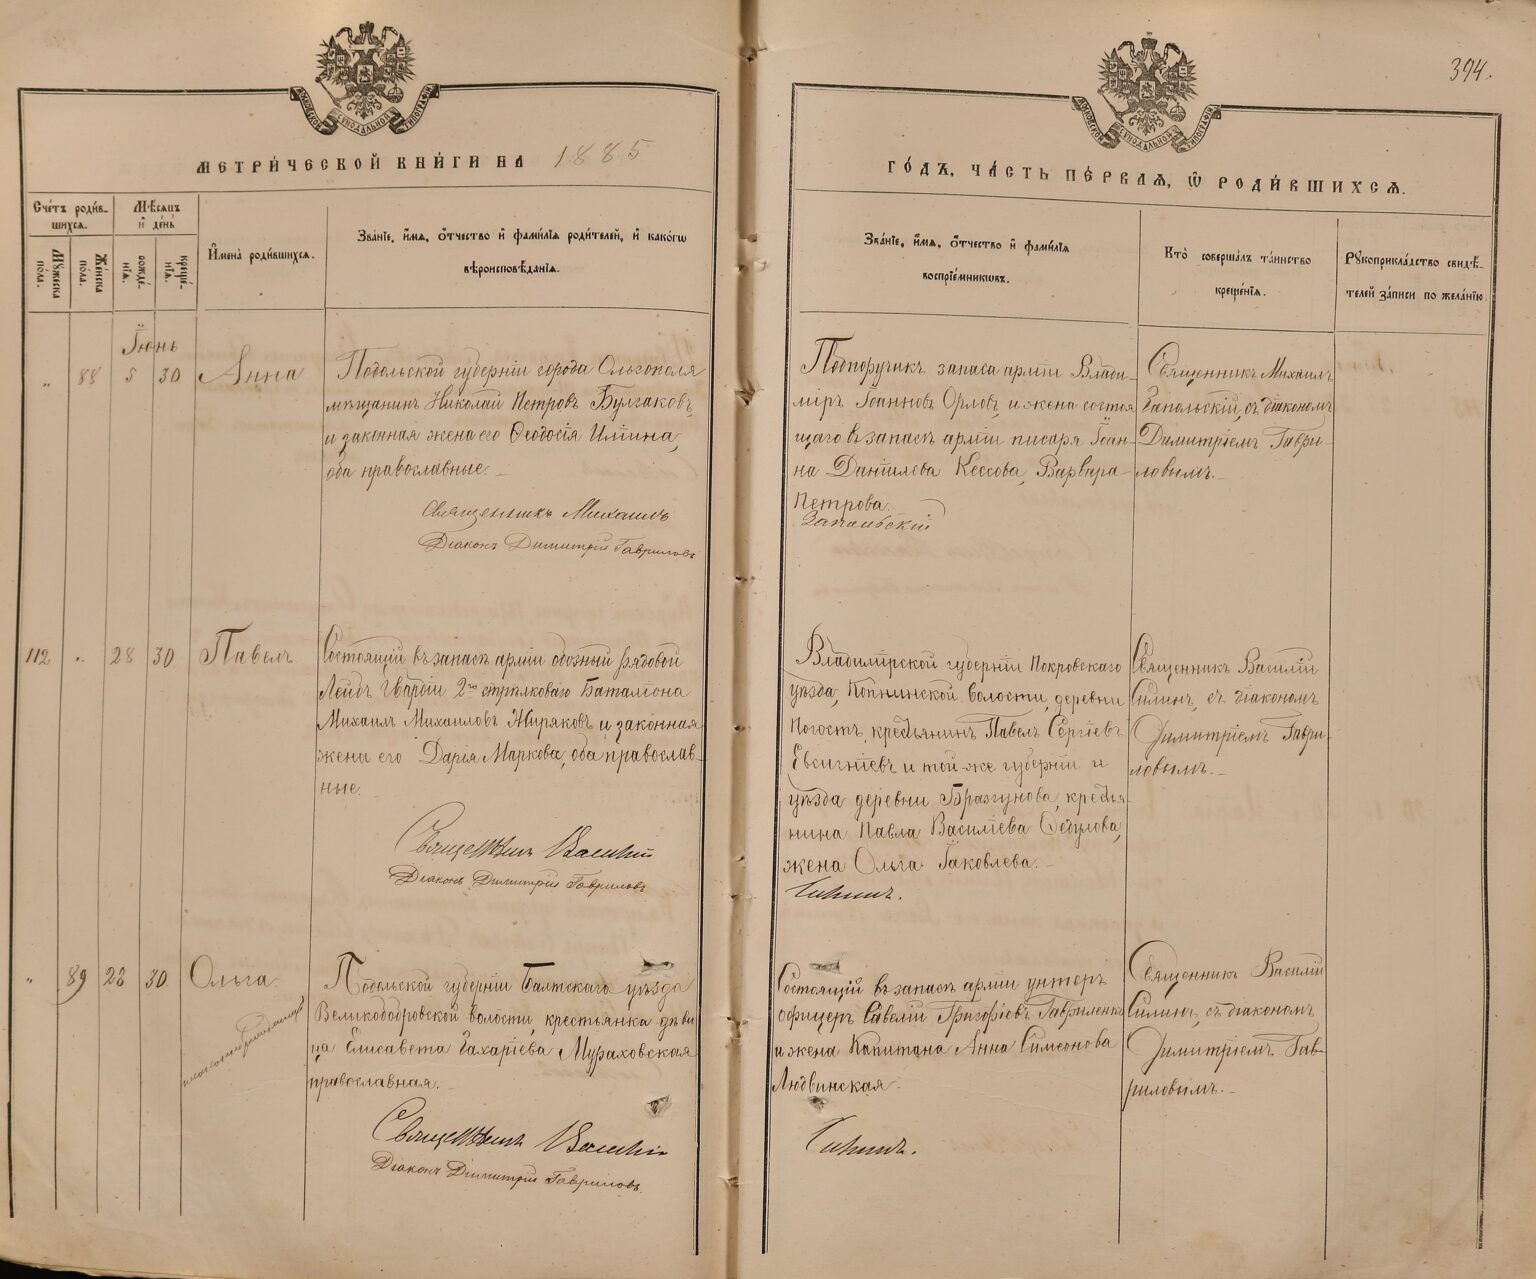 394.
МОСКОВСКОЙ СѴНОДАЛЬНОЙ ТИПОГРАФІИ
МОСКОВСКОЙ СѴНОДАЛЬНОЙ ТИПОГРАФІИ
МЕТРИ́ЧЕСКОЙ КНИ́ГИ НА 1885
ГО́ДЪ, ЧА́СТЬ ПЕ́РВАѦ, Ѡ РОДИ́ВШИХСѦ.
Сче́тъ роди́в-
шихся.
Мѣ́сяцъ
и де́нь
Му́жеска
по́ла.
Же́нска
по́ла.
рожде́-
нїя.
креще́-
нїя.
Имена̀ роди́вшихся.
Зва́нїе, и́мя, о́тчество и фами́лїя роди́телей, и како́гѡ
вѣроисповѣ́данїя.
Зва́нїе, и́мя, о́тчество и фами́лїя
воспрїе́мниковъ.
Кто̀ соверша́лъ та́инство
креще́нїя.
Рукоприкла́дство свидѣ́-
телей за́писи по жела́нїю.
Їюнь
„ 88 5 30 Анна
Подольской губерніи города Ольгополя
мѣщанинъ Николай Петровъ Булгаковъ,
и законная жена его Ѳеодосія Ильина,
оба православные.
Священникъ Михаилъ
Діаконъ Димитрій Гавриловъ
Подпоручикъ запаса арміи Влади-
міръ Іоанновъ Орловъ, и жена состоя
щаго въ запасѣ арміи писаря Іоан-
на Даніилева Кессова, Варвара
Петрова.
Запольскій
Священникъ Михаилъ
Запольскій, съ діакономъ
Димитріемъ Гаври-
ловымъ.
112 „ 28 30 Павелъ
Состоящій въ запасѣ арміи обозный рядовой
Лейбъ Гвардіи 2го стрѣлковаго Баталіона
Михаилъ Михаиловъ Жиряковъ и законная
жена его Дарія Маркова, оба православ-
ные.
Священникъ Василій
Діаконъ Димитрій Гавриловъ
Владимірской губерніи Покровскаго
уѣзда, Копнинской волости, деревни
Погостъ, крестьянинъ Павелъ Сергіевъ
Евсигніевъ и той-же губерніи и
уѣзда деревни Бразгунова, крестья-
нина Павла Василіева Ѳедулова,
жена Ольга Іаковлева.
Силинъ.
Священникъ Василій
Силинъ, съ діакономъ
Димитріемъ Гаври-
ловымъ.
„ 89 28 30 Ольга
Подольской губерніи Балтскаго уѣзда
Великобобровской волости, крестьянка дѣви
ца Елисавета Захаріева Мураховская
православная.
Священникъ Василій
Діаконъ Димитрій Гавриловъ
Состоящій въ запасѣ арміи унтеръ
офицеръ Савелій Григоріевъ Гавриленко
и жена Капитана Анна Симеонова
Людвинская.
Силинъ.
Священникъ Василій
Силинъ, съ діакономъ
Димитріемъ Гав-
риловымъ.